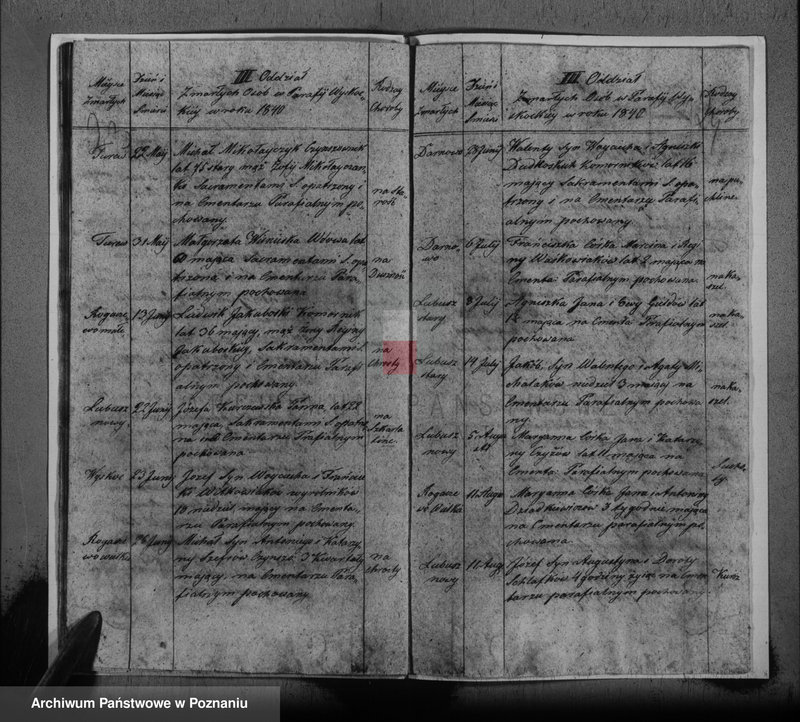 Miejsce Zmarłych
Dzień i Miesiąc Śmierci
III Oddział
Zmarłych Osób w Parafij Wyskoc
kiey w roku 1840
Rodzaj Choroby
Turew 22 Maij Michał Mikołajczyk Czynszownik
lat 75 stary mąż Zofij Mikołayczan
ka Sacramentami S. opatrzony i
na Cmentarzu Parafialnym po
chowany.
na sta
rość
Turew 31 Maij Małgorzata Wdowa lat
mająca Sacramentami S. opa
trzona i na Cmentarzu Para
fialnym pochowana
na
Rogacze
wo małe 13 Junij Ludwik Jakuboski Komornik
lat 36 mający, mąż żony Reginy
Jakuboskiey, Sakramentami S.
opatrzony i Cmentarzu Parafi
alnym pochowany
na
Choroby
Lubusz
nowy 22 Junij Józefa Kurowska Panna, lat 22
mająca, Sakramentami S. opatrzo
na i na Cmentarzu Parafialnym
pochowana
na
Szkarla
tine.
Wyskoc 23 Junij Jozef Syn Woyciecha i Francisz
ki wyrobników
10 niedziel, mający na Cmenta
rzu Parafialnym pochowany.
Rogacze
wo wielkie 26 Junij Michał Syn Antoniego i Katarzy
ny Szefrów Czynszo. 3 Kwartały
mający, na Cmentarzu Para
fialnym pochowany
na
choroby
Miejsce Zmarłych
Dzień i Miesiąc Śmierci
III Oddział
Zmarłych Osób w Parafij Wy
skockiey w roku 1840
Rodzaj Choroby
Darnowo Junij Walenty Syn Woyciecha i Agnieszki
Komorników lat 16
mający Sakramentami S. opa
trzony i na Cmentarzu Parafi
alnym pochowany
na pu
chline
Darno
wo 6 July Franciszka Córka Marcina i Regi
ny lat 2 mająca na
Cmenta: Parafialnym pochowana
na ka
szel.
Lubusz
stary 8 July Agnieszka Jana i Ewy lat
mająca na Cmenta Parafialnym
pochowana
na ka
szel.
Lubusz
stary 14 July Jakób, Syn Walentego i Agaty Mi
chalaków niedziel 3 mający na
Cmentarzu Parafialnym pochowa
ny.
na ka
szel.
Lubusz
nowy 5 Augu
st Maryanna Córka Jana i Katarzy
ny Czyżów lat 11 mająca na
Cmenta: Parafialnym pochowana
Rogacze
wo Wielkie 11 Augu Maryanna Córka Jana i Antoniny
3 tygodnie mająca
na Cmentarzu parafialnym po
chowana.
Lubusz
nowy 11 Aug Józef Syn Augustyna i Doroty
4 godziny żyjący na Cmen
tarzu parafialnym pochowany
Kurz
ARCHIWUM PAŃSTWOWE
Archiwum Państwowe w Poznaniu